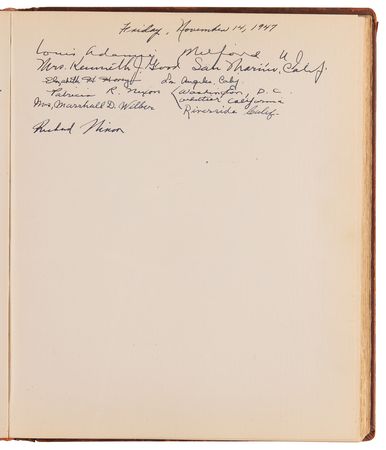 Friday, November 14, 1947
Louis Adamic Milford N J
Mrs. Kenneth J. Good San Marino, Calif.
Elizabeth H. Los Angeles, Calif.
Patricia R. Nixon Washington, D. C.
Whittier California
Mrs. Marshall D. Wilber Riverside Calif.
Richard Nixon